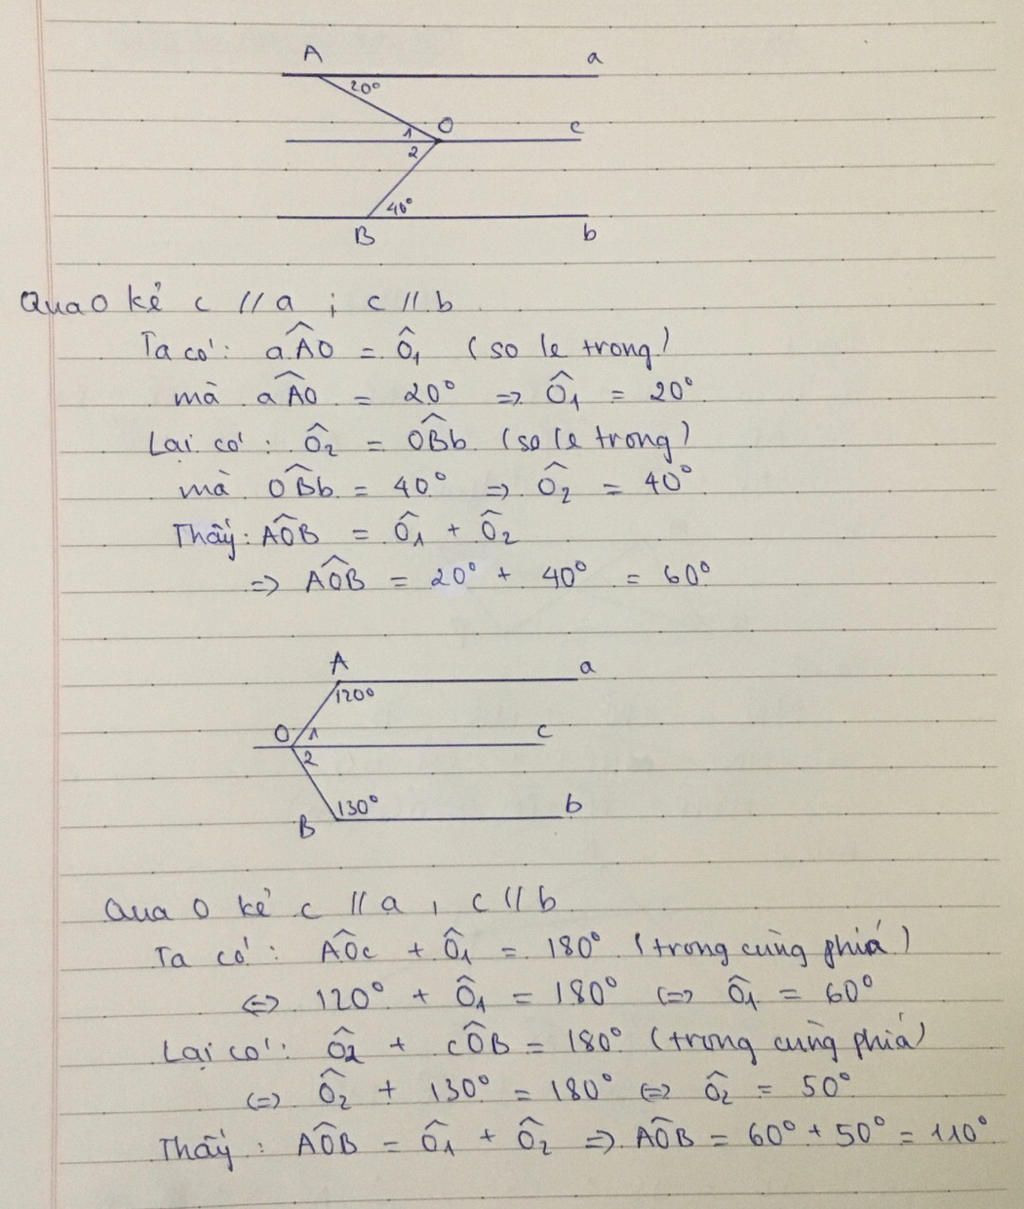 A a
20°
1 O c
2
40°
B b
Qua O kẻ c // a ; c // b
Ta có: aÂO = Ô₁ (so le trong)
mà aÂO = 20° => Ô₁ = 20°
Lại có: Ô₂ = OB̂b (so le trong)
mà OB̂b = 40° => Ô₂ = 40°
Thấy: AÔB = Ô₁ + Ô₂
=> AÔB = 20° + 40° = 60°
A a
120°
O 1 c
2
130° b
B
Qua O kẻ c // a , c // b
Ta có: AÔc + Ô₁ = 180° (trong cùng phiá)
<=> 120° + Ô₁ = 180° <=> Ô₁ = 60°
Lại có: Ô₂ + cÔB = 180° (trong cùng phiá)
<=> Ô₂ + 130° = 180° <=> Ô₂ = 50°
Thấy: AÔB = Ô₁ + Ô₂ => AÔB = 60° + 50° = 110°